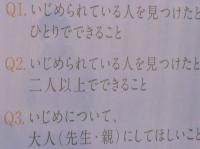 Q1. いじめられている人を見つけたと
ひとりでできること
Q2. いじめられている人を見つけたと
二人以上でできること
Q3. いじめについて、
大人(先生・親)にしてほしいこ